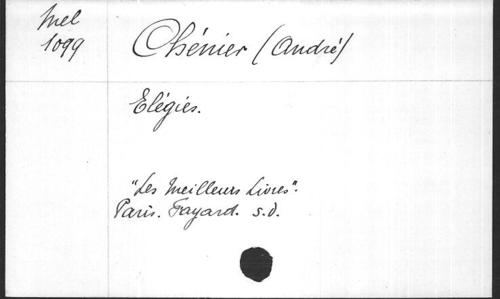 Mel
1099
Chénier (André)
Elégies.
"Les Meilleurs Livres".
Paris. Fayard. s.d.